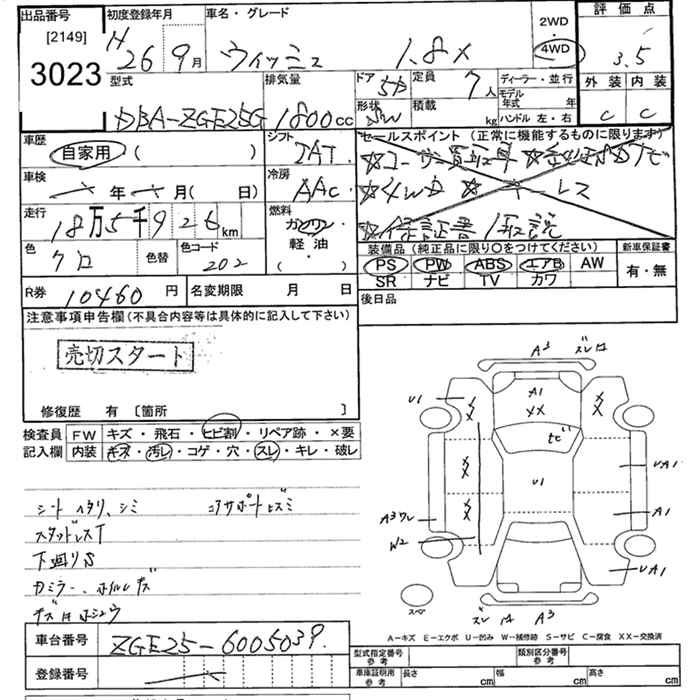 出品番号 初度登録年月 車名・グレード 2WD 評価点
[2149] H 26 9月 ウィッシュ 1.8X 4WD 3.5
3023 型式 排気量 ドア 5D 定員 7人 ディーラー・並行 外装 内装
DBA-ZGE25G 1800cc 形状 積載 kg モデル年式 年 ハンドル 左・右 C C
車歴 自家用 ( ) シフト IAT セールスポイント (正常に機能するものに限ります)
☆ユーザー買取車 ☆
車検 年 月 ( 日) 冷房 AAC ☆4WD ☆キーレス
走行 18万5千926km 燃料 ガソリン 軽油 ( ) ☆保証書/取説
色 クロ 色替 色コード 202 装備品 (純正品に限り○をつけてください) 新車保証書
PS PW ABS エアB AW 有・無
SR ナビ TV カワ
R券 10460円 名変期限 月 日 後日品
注意事項申告欄 (不具合内容等は具体的に記入して下さい)
売切スタート
修復歴 有 [箇所 ]
検査員 FW キズ・飛石・ヒビ割・リペア跡・×要
記入欄 内装 キズ・汚レ・コゲ・穴・スレ・キレ・破レ
シート ヘタリ、シミ コアサポートヒズミ
スタッドレスT
下廻りS
カミラー、ホイルキズ
キズ凹ホシュウ
A3 ズレ凹
U1 A1 XX
XX XX
ヒビ
XX U1 UA1
A3ワレ XX A1
W2 UA1
スペ ズレ 凹 A3
A−キズ E−エクボ U−凹み W−補修跡 S−サビ C−腐食 XX−交換済
車台番号 ZGE25-6005039
登録番号
型式指定番号 参考 類別区分番号 参考
車庫証明用 参考 長さ cm 幅 cm 高さ cm